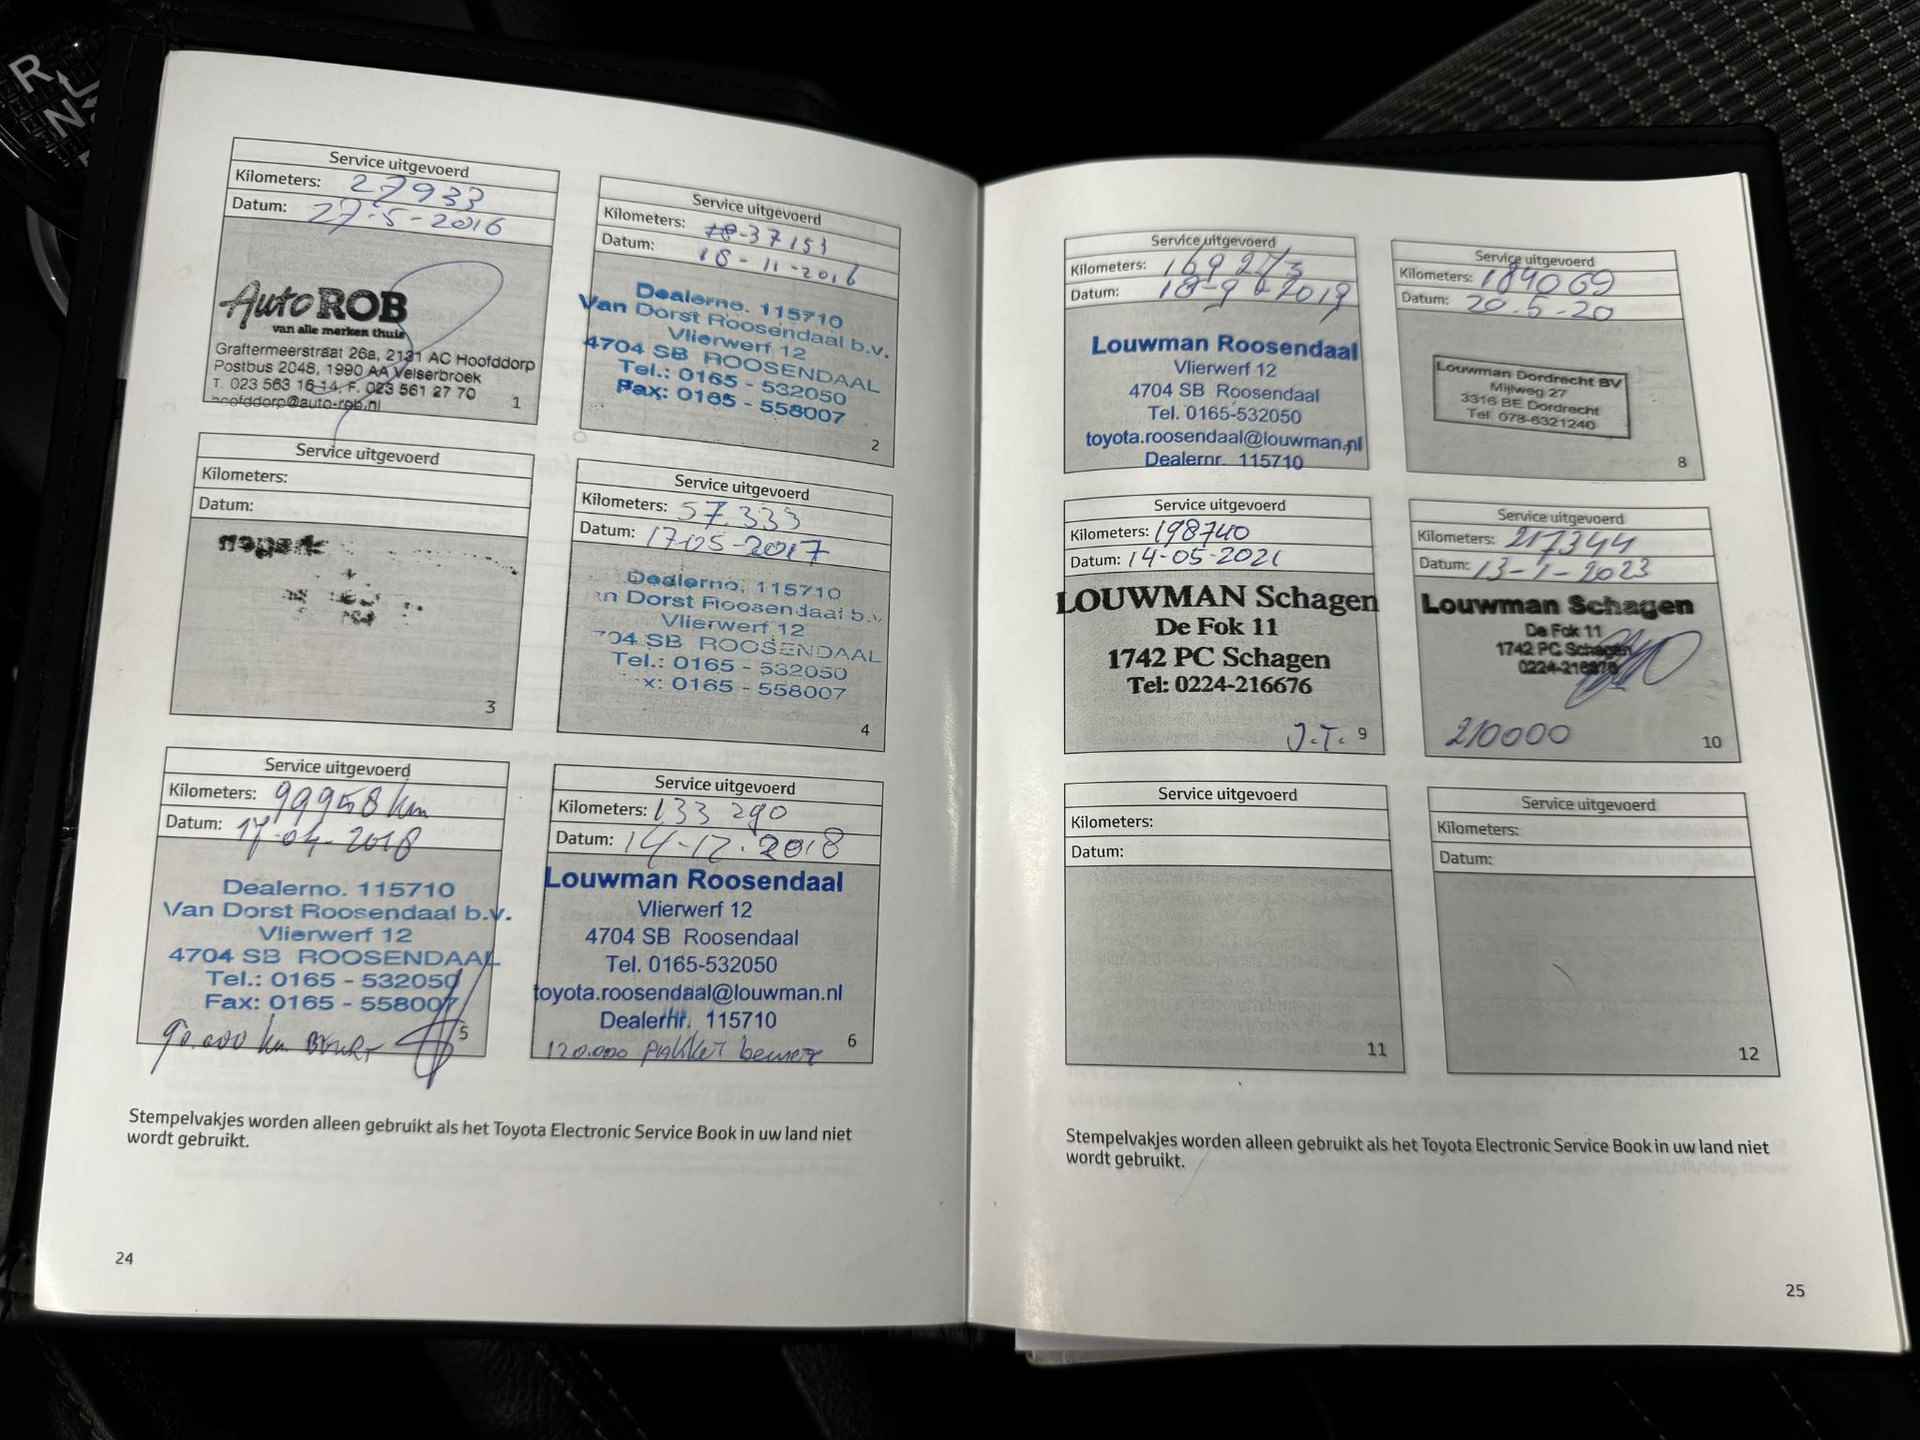 R
N
Service uitgevoerd
Kilometers: 27933
Datum: 27-5-2016
Auto ROB
van alle merken thuis
Graftermeerstraat 26a, 2131 AC Hoofddorp
Postbus 2048, 1990 AA Velserbroek
T. 023 563 16 14, F. 023 561 27 70
hoofddorp@auto-rob.nl
1
Service uitgevoerd
Kilometers: 37153
Datum: 18-11-2016
Dealerno. 115710
Van Dorst Roosendaal b.v.
Vlierwerf 12
4704 SB ROOSENDAAL
Tel.: 0165 - 532050
Fax: 0165 - 558007
2
Service uitgevoerd
Kilometers:
Datum:
3
Service uitgevoerd
Kilometers: 57.333
Datum: 17-05-2017
Dealerno. 115710
an Dorst Roosendaal b.v.
Vlierwerf 12
704 SB ROOSENDAAL
Tel.: 0165 - 532050
x: 0165 - 558007
4
Service uitgevoerd
Kilometers: 99958 km
Datum: 17-04-2018
Dealerno. 115710
Van Dorst Roosendaal b.v.
Vlierwerf 12
4704 SB ROOSENDAAL
Tel.: 0165 - 532050
Fax: 0165 - 558007
90.000 km
5
Service uitgevoerd
Kilometers: 133 290
Datum: 14-12-2018
Louwman Roosendaal
Vlierwerf 12
4704 SB Roosendaal
Tel. 0165-532050
toyota.roosendaal@louwman.nl
Dealernr. 115710
120.000
6
Stempelvakjes worden alleen gebruikt als het Toyota Electronic Service Book in uw land niet
wordt gebruikt.
24
Service uitgevoerd
Kilometers: 169273
Datum: 18-9-2019
Louwman Roosendaal
Vlierwerf 12
4704 SB Roosendaal
Tel. 0165-532050
toyota.roosendaal@louwman.nl
Dealernr. 115710
Service uitgevoerd
Kilometers: 184069
Datum: 20.5-20
Louwman Dordrecht BV
Mijlweg 27
3316 BE Dordrecht
Tel. 078-6321240
8
Service uitgevoerd
Kilometers: 198740
Datum: 14-05-2021
LOUWMAN Schagen
De Fok 11
1742 PC Schagen
Tel: 0224-216676
J.T. 9
Service uitgevoerd
Kilometers: 217344
Datum: 13-1-2023
Louwman Schagen
De Fok 11
1742 PC Schagen
0224-216676
210000
10
Service uitgevoerd
Kilometers:
Datum:
11
Service uitgevoerd
Kilometers:
Datum:
12
Stempelvakjes worden alleen gebruikt als het Toyota Electronic Service Book in uw land niet
wordt gebruikt.
25